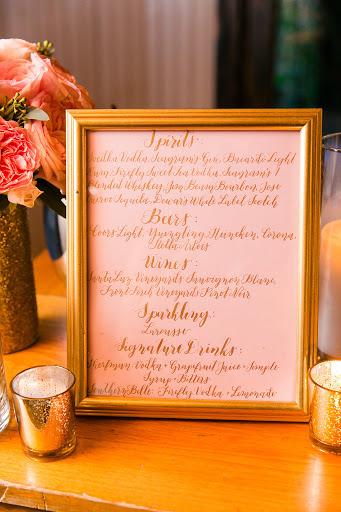 Spirits:
Vodka, Seagram's Gin, Bacardi Light
Firefly Sweet Tea Vodka, Seagram's 7
Blended Whiskey, Jim Beam Bourbon, Jose
Cuervo Tequila, Dewar's White Label Scotch
Beers:
Coors Light, Yuengling, Heineken, Corona,
Stella Artois
Wines:
Santa Luz Vineyards Sauvignon Blanc,
Front Porch Vineyards Pinot Noir
Sparkling:
Larousse
Signature Drinks:
Vodka + Grapefruit Juice + Simple
Syrup + Bitters
Southern Belle: Firefly Vodka + Lemonade